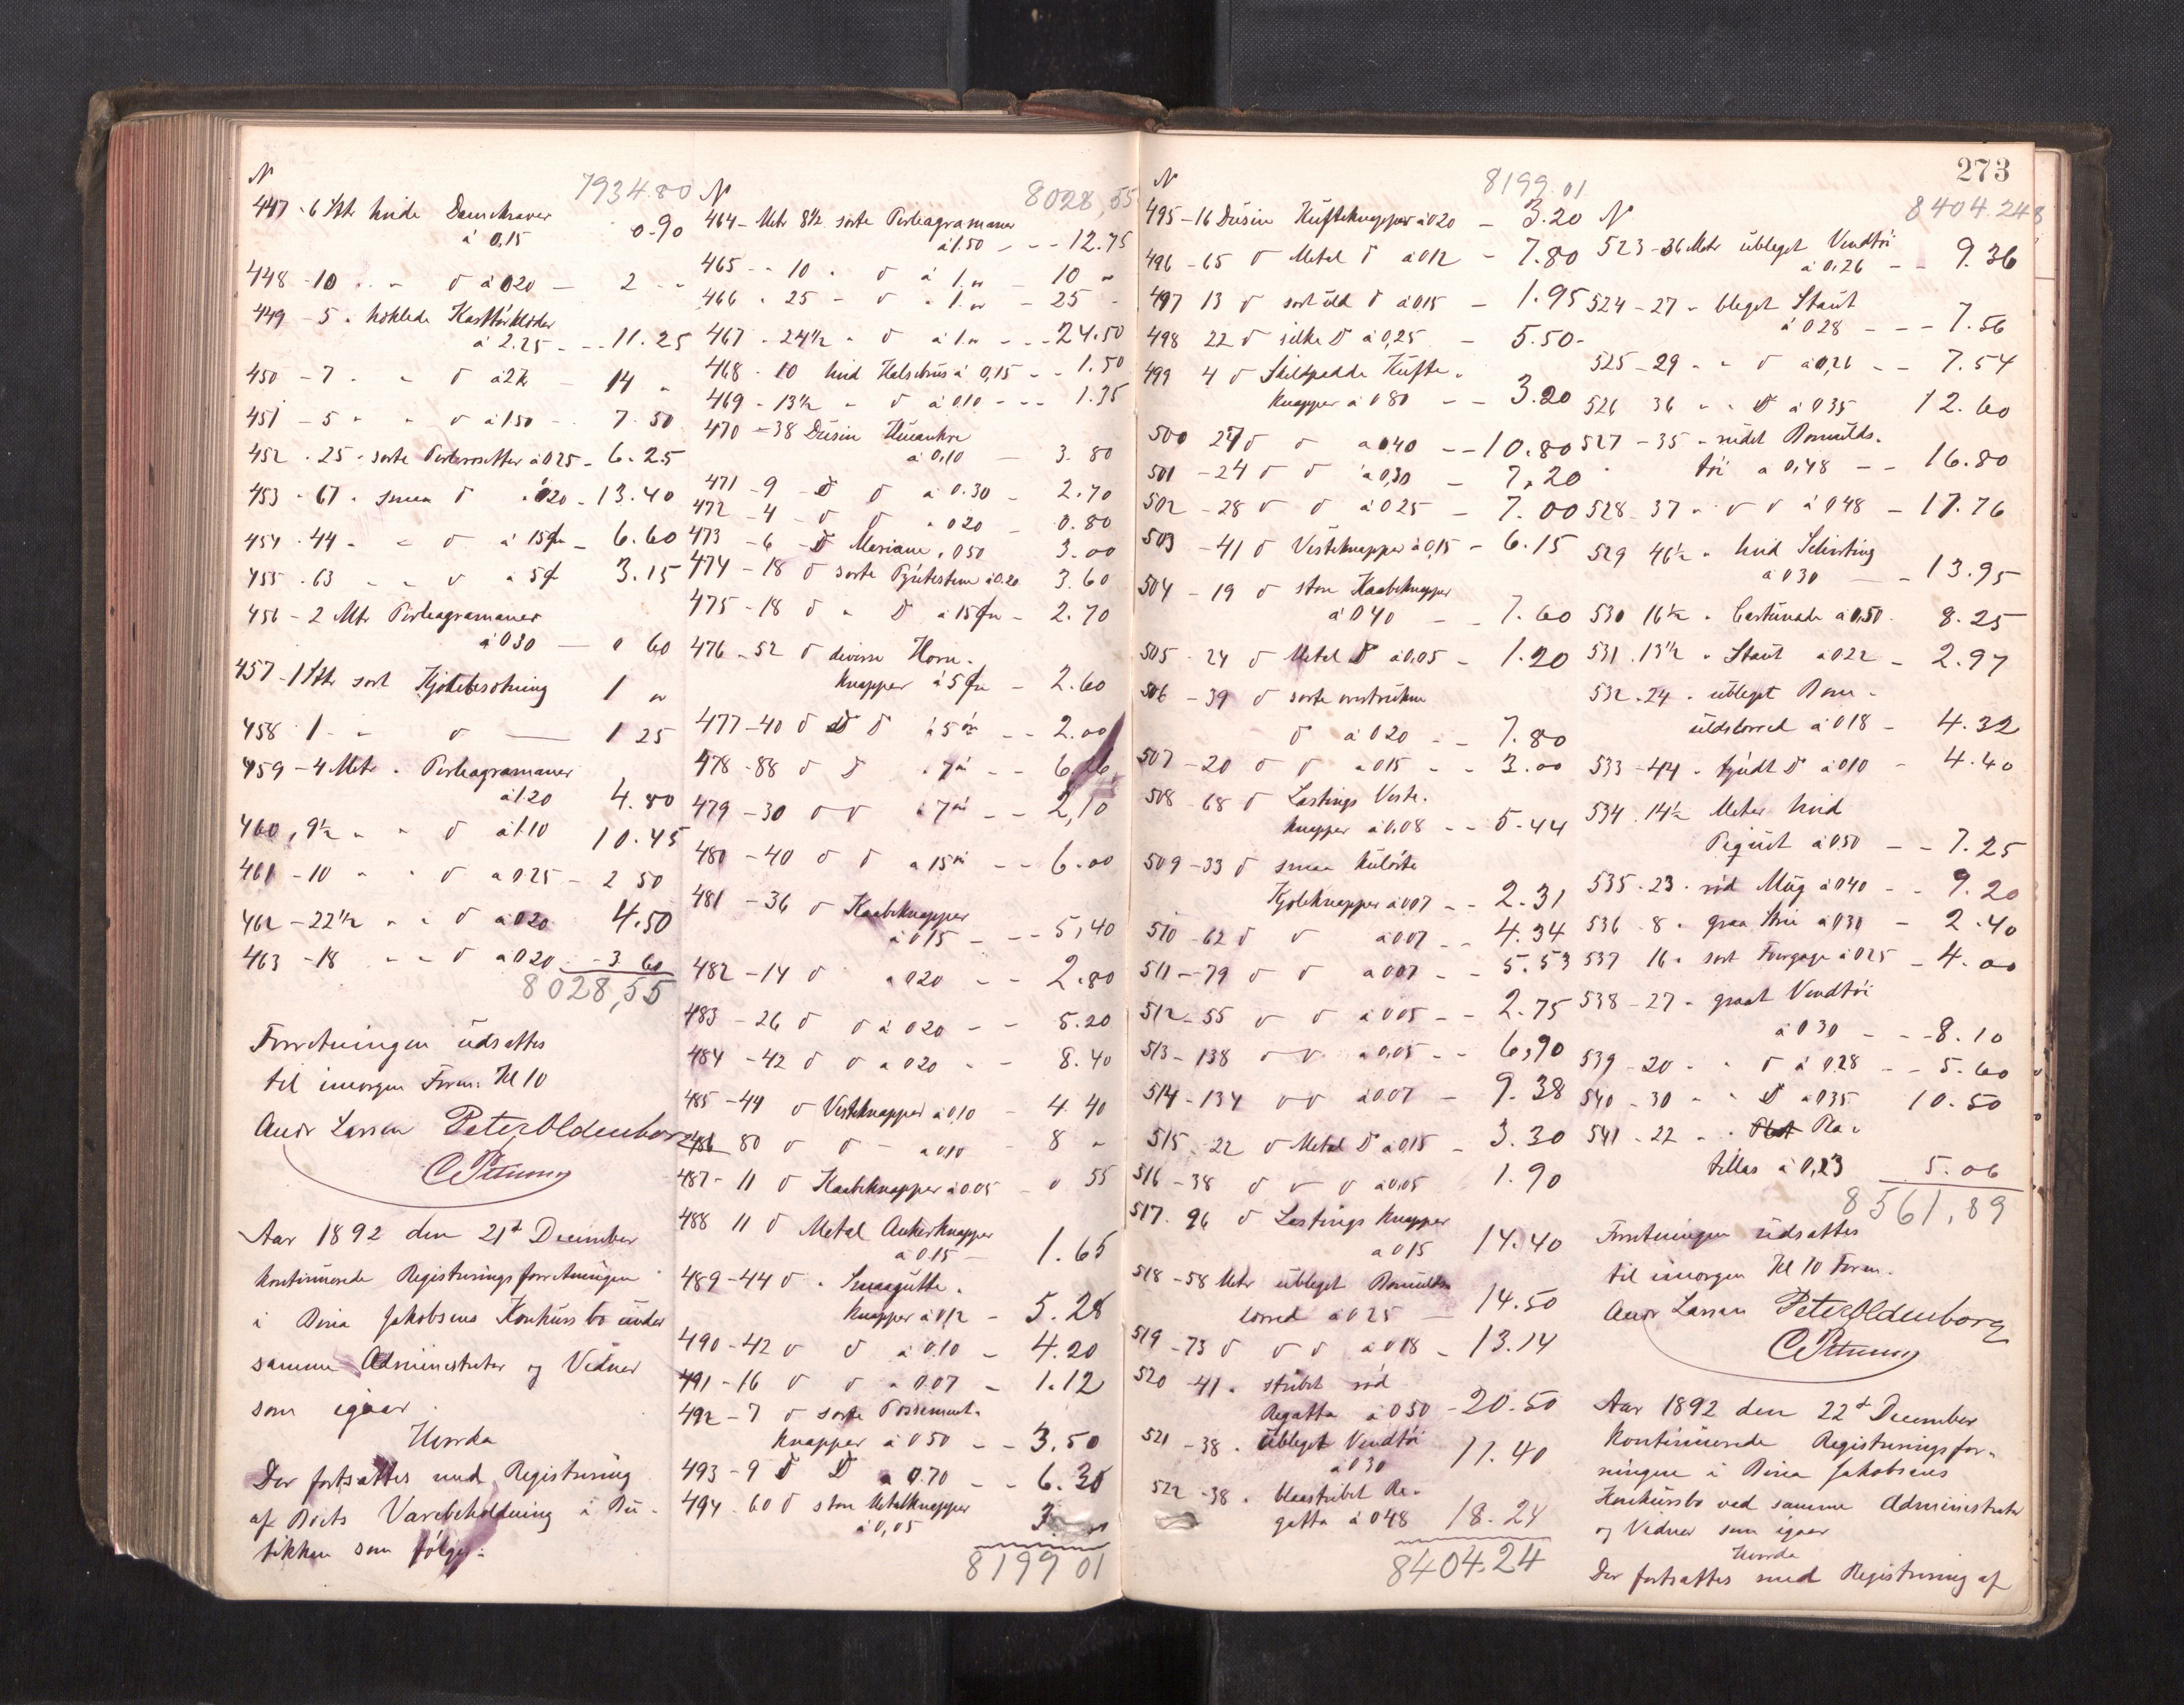 N 7934.80
447 - 6 Stkr hvide Damekraver
á 0,15 0.90
448 - 10 " - d á 020 - 2 -
449 - 5 " hæklede
á 2.25 - - 11.25
450 - 7 " " d á 2 Kr - 14 "
451 - 5 " " d á 1.50 - 7.50
452 - 25 - sorte Perlerosetter á 025 - 6.25
453 - 67 " smaa d " 020 - 13.40
454 - 44 " - d á 15 Øre - 6.60
455 - 63 - - d á 5 Ø 3.15
456 - 2 Mtr Perleagramaner
á 030 - 0 60
457 - 1 Stkr sort Kjolebesætning 1 "
458 1 - " d - 1 25
459 - 4 Mtr " Perleagramaner
á 1.20 4.80
460, 9½ " " d á 1.10 10.45
461 - 10 " " d a 025 - 2 50
462 - 22½ " " d á 020 4.50
463 - 18 - - d a 020 - 3 60
8028,55
Forretningen udsattes
til imorgen Form: Kl 10
Andr Larsen Peter Oldenborg
C Petersen
Aar 1892 den 21d December
kontinuerede Registreringsforretningen
i Jakobsens Konkursbo under
samme Administrator og Vidner
som igaar.
Hvorda
Der fortsattes med Registrering
af Boets Varebeholdning i Bu-
tikken som følger:
N 8028,55
464 - Metr 8½ sorte Perleagramaner
á 1.50 - - - 12.75
465 - - 10 " d á 1. " 10 -
466 - 25 - d " 1. " - 25 -
467 - 24½ " d á 1. " - - - 24.50
468 - 10 hvid Halsebrus á 0,15 - - 1.50
469 - 13½ " d á 0.10 - - - 1.35
470 - 38 Dusin
á 0,10 - 3.80
471 - 9 - d d á 0.30 - 2.70
472 - 4 - d d " 020 - 0.80
473 - 6 - d " 050 3.00
474 - 18 d sorte á 0.20 3.60
475 - 18 d " d á 15 Øre - 2.70
476 - 52 d diverse Horn-
knapper á 5 Øre - 2.60
477 - 40 d d d á 5 Ør - - 2.00
478 - 88 d d " 7 Ør - - 6,16
479 - 30 d d " 7 Ør - - 2,10
480 - 40 d d a 15 Ør - - 6.00
481 - 36 d Kaabeknapper
á 0 15 - - - 5,40
482 - 14 d " 020 - - 2.80
483 - 26 d d á 020 - - 5.20
484 - 42 d d a 020 - - 8.40
485 - 44 d Vesteknapper á 0,10 - 4.40
486 80 d d - a 0,10 - 8 "
487 - 11 d Kaabeknapper á 0.05 - 0 55
488 11 d Metal Ankerknapper
a 0.15 - 1.65
489 - 44 d "
knapper á 0,12 - 5.28
490 - 42 d d á 0.10 - 4.20
491 - 16 d d " 0.07 - 1.12
492 - 7 d sorte Possement-
knapper á 0 50 - - 3.50
493 - 9 d d a 0.70 - - 6.30
494 - 60 d store Metalknapper
á 0,05 3.
8199 01
273
N 8199.01
495 - 16 Dusin Kufteknapper á 020 - 3.20
496 - 65 d Metal d a 012 - 7.80
497 13 d sort uld d á 015 - 1.95
498 22 d silke d á 0,25 - 5.50 -
499 4 d Skildpadde Kufte-
knapper á 0 80 - - 3.20
500 27 d d a 0,40 - - 10.80
501 - 24 d d á 0,30 - 7.20
502 - 28 d d á 0 25 - 7.00
503 - 41 d Vesteknapper á 0,15 - 6.15
504 - 19 d store Kaabeknapper
á 0 40 - - 7.60
505 - 24 d Metal d á 0,05 - 1.20
506 - 39 d sorte overtrukne
d á 0 20 - - 7.80
507 - 20 d d " 015 - - 3.00
508 - 68 d Lastings Veste-
knapper á 0,08 - - 5.44
509 - 33 d smaa kulørte
Kjoleknapper á 007 - - 2.31
510 - 62 d d á 007 - - 4.34
511 - 79 d d a 007 - - 5.53
512 - 55 d d á 0 05 - - 2.75
513 - 138 d d a 0,05 - - 6,90
514 - 134 d d á 0.07 - 9.38
515 - 22 d Metal d á 0,15 - 3.30
516 - 38 d d d á 0,05 1.90
517. 96 d Lastings knapper
a 015 14.40
518 - 58 Mtr ubleget Bomulds
lærred á 0 25 - 14.50
519 - 73 d d d á 0 18 - 13.14
520 - 41 " stribet rød
Regatta á 0 50 - 20.50
521 - 38 " Ubleget Vendtøi
á 0 30 11.40
522 - 38 " blaastribet Re-
gatta á 0 48 18.24
8404.24
N 8404.24
523 - 36 Mtr ubleget Vendtøi
a 0,26 - - 9.36
524 - 27 " bleget Staut
á 0 28 - - - 7.56
525 - 29 " " d á 0,26 - - 7.54
526 36 " " d á 0 35 12.60
527 - 35 " rudet Bomulds-
tøi a 0,48 - - 16.80
528 - 37 " d d á 0 48 - 17.76
529 46½ " hvid Schirting
á 0 30 - - 13.95
530 16½ " á 0,50 - 8.25
531 . 13½ " Staut a 0 22 - 2.97
532 . 24 - ubleget Bom-
uldslærred á 0 18 - 4.32
533 - 44 - tyndt d á 0 10 - 4.40
534 . 14½ Meter hvid
Piquet á 0 50 - - 7.25
535 - 23 - rød á 0 40 - - 9.20
536 8 " graa Strie a 0 30 - 2.40
537 16 " sort Foergaze á 0 25 - 4.00
538 - 27 " graat Vendtøi
á 0 30 - - - 8.10
539 - 20 - " d á 0.28 - - 5.60
540 - 30 " " d a 0 35 10.50
541 - 22 " "
tillas á 0,23 5.06
8561,89
Forretningen udsattes
til imorgen Kl 10 Form.
Andr Larsen Peter Oldenborg
C Petersen
Aar 1892 den 22d December
kontinuerede Registreringsfor-
ningen i Jakobsens
Konkursbo ved samme Administrator
og Vidner som igaar
Hvorda
Der fortsattes med Registrering af